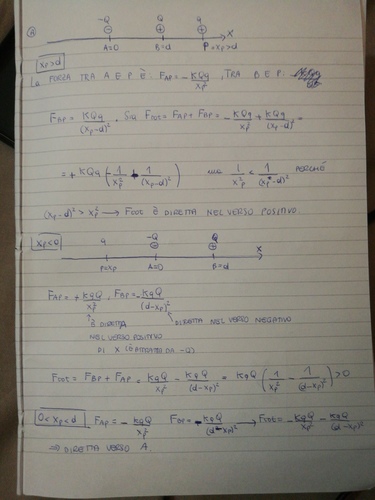 -Q Q q
⊖ ⊕ ⊕ X
A=0 B=d P=xp>d
xp>d
LA FORZA TRA A E P È: FAP = - KQq/xp² , TRA B E P:
FBP = KQq/(xp-d)² . SIA FTOT = FAP + FBP = - KQq/xp² + KQq/(xp-d)² =
= + KQq (- 1/xp² + 1/(xp-d)²) MA 1/xp² < 1/(xp-d)² PERCHÉ
(xp-d)² > xp² → FTOT È DIRETTA NEL VERSO POSITIVO.
xp<0
q -Q Q X
⊕ ⊕
P=xp A=0 B=d
FAP = + KqQ/xp² , FBP = - KqQ/(d-xp)²
È DIRETTA DIRETTA NEL VERSO NEGATIVO
NEL VERSO POSITIVO
DI X (È ATTRATTA DA -Q)
FTOT = FBP + FAP = KqQ/xp² - KqQ/(d-xp)² = KqQ (1/xp² - 1/(d-xp)²) > 0
0<xp<d FAP = - KqQ/xp² FBP = - KqQ/(d-xp)² → FTOT = - KqQ/xp² - KqQ/(d-xp)²
⇒ DIRETTA VERSO A.